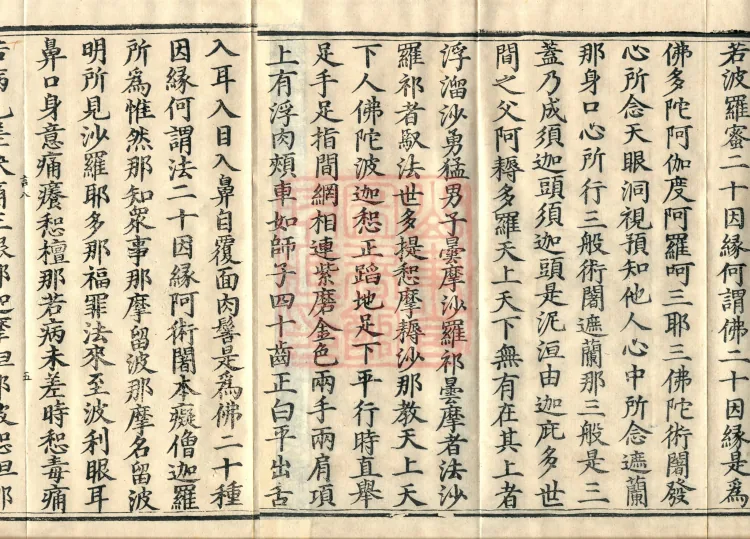 若波羅蜜二十因緣何謂佛二十因緣是爲
佛多陀阿伽度阿羅呵三耶三佛陀術闍發
心所念天眼洞視預知他人心中所念遮蘭
那身口心所行三般術闍遮蘭那三般是三
蓋乃成須迦頭須迦頭是泥洹由迦庇多世
間之父阿耨多羅天上天下無有在其上者
浮溜沙勇猛男子曇摩沙羅祁曇摩者法沙
羅祁者馭法世多提惒摩耨沙那教天上天
下人佛陀波迦惒正蹈地足下平行時直舉
足手足指間網相連紫磨金色兩手兩肩項
上有浮肉頰車如師子四十齒正白平出舌
入耳入目入鼻自覆面肉髻是爲佛二十種
因緣何謂法二十因緣阿術闍本癡僧迦羅
所爲惟然那知衆事那摩留波那摩名留波
明所見沙羅耶多那福罪法來至波利眼耳
鼻口身意痛癢惒檀那若病未差時惒毒痛